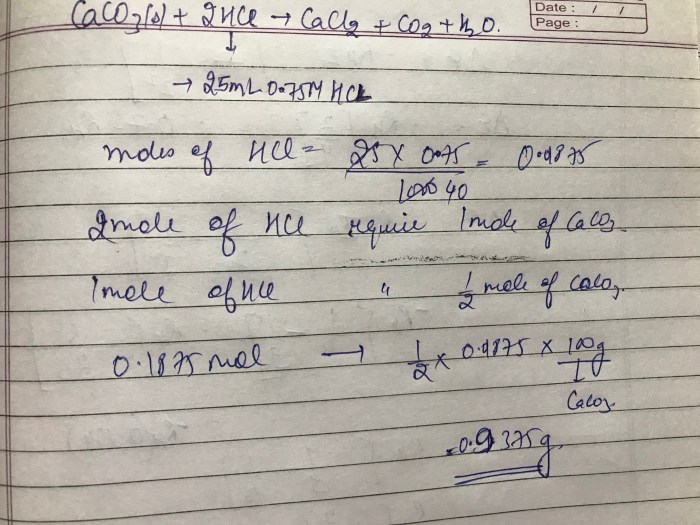 Date : / /
Page :
CaCO3(s) + 2HCl → CaCl2 + CO2 + H2O.
↓
→ 25mL 0.75M HCl
moles of HCl = 25 × 0.75 / 1000 40 = 0.01875
2mole of HCl require 1mole of CaCO3.
1mole of HCl " 1/2 mole of CaCO3.
0.1875 mol → 1/2 × 0.01875 × 100g / 1
CaCO3.
= 0.9375g.